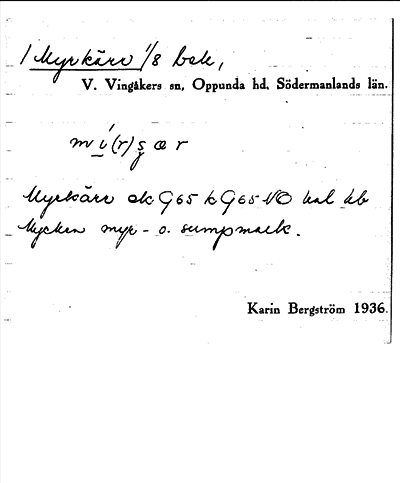 / Myrkärr 1/8 bek,
V. Vingåkers sn, Oppunda hd, Södermanlands län.
Myrkärr ek G65 k G65 NO hal hb
Mycken myr- o. sumpmark.
Karin Bergström 1936.